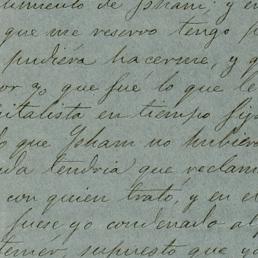 timiento de Isham; y en
que me reservo tengo p
pudiera hacerme, y q
or yo que fué lo que le
pitalista en tiempo fij
lo que Isham no hubier
da tendria que reclam
con quien trató, y en e
fuese yo condenado al
temer, supuesto que yo